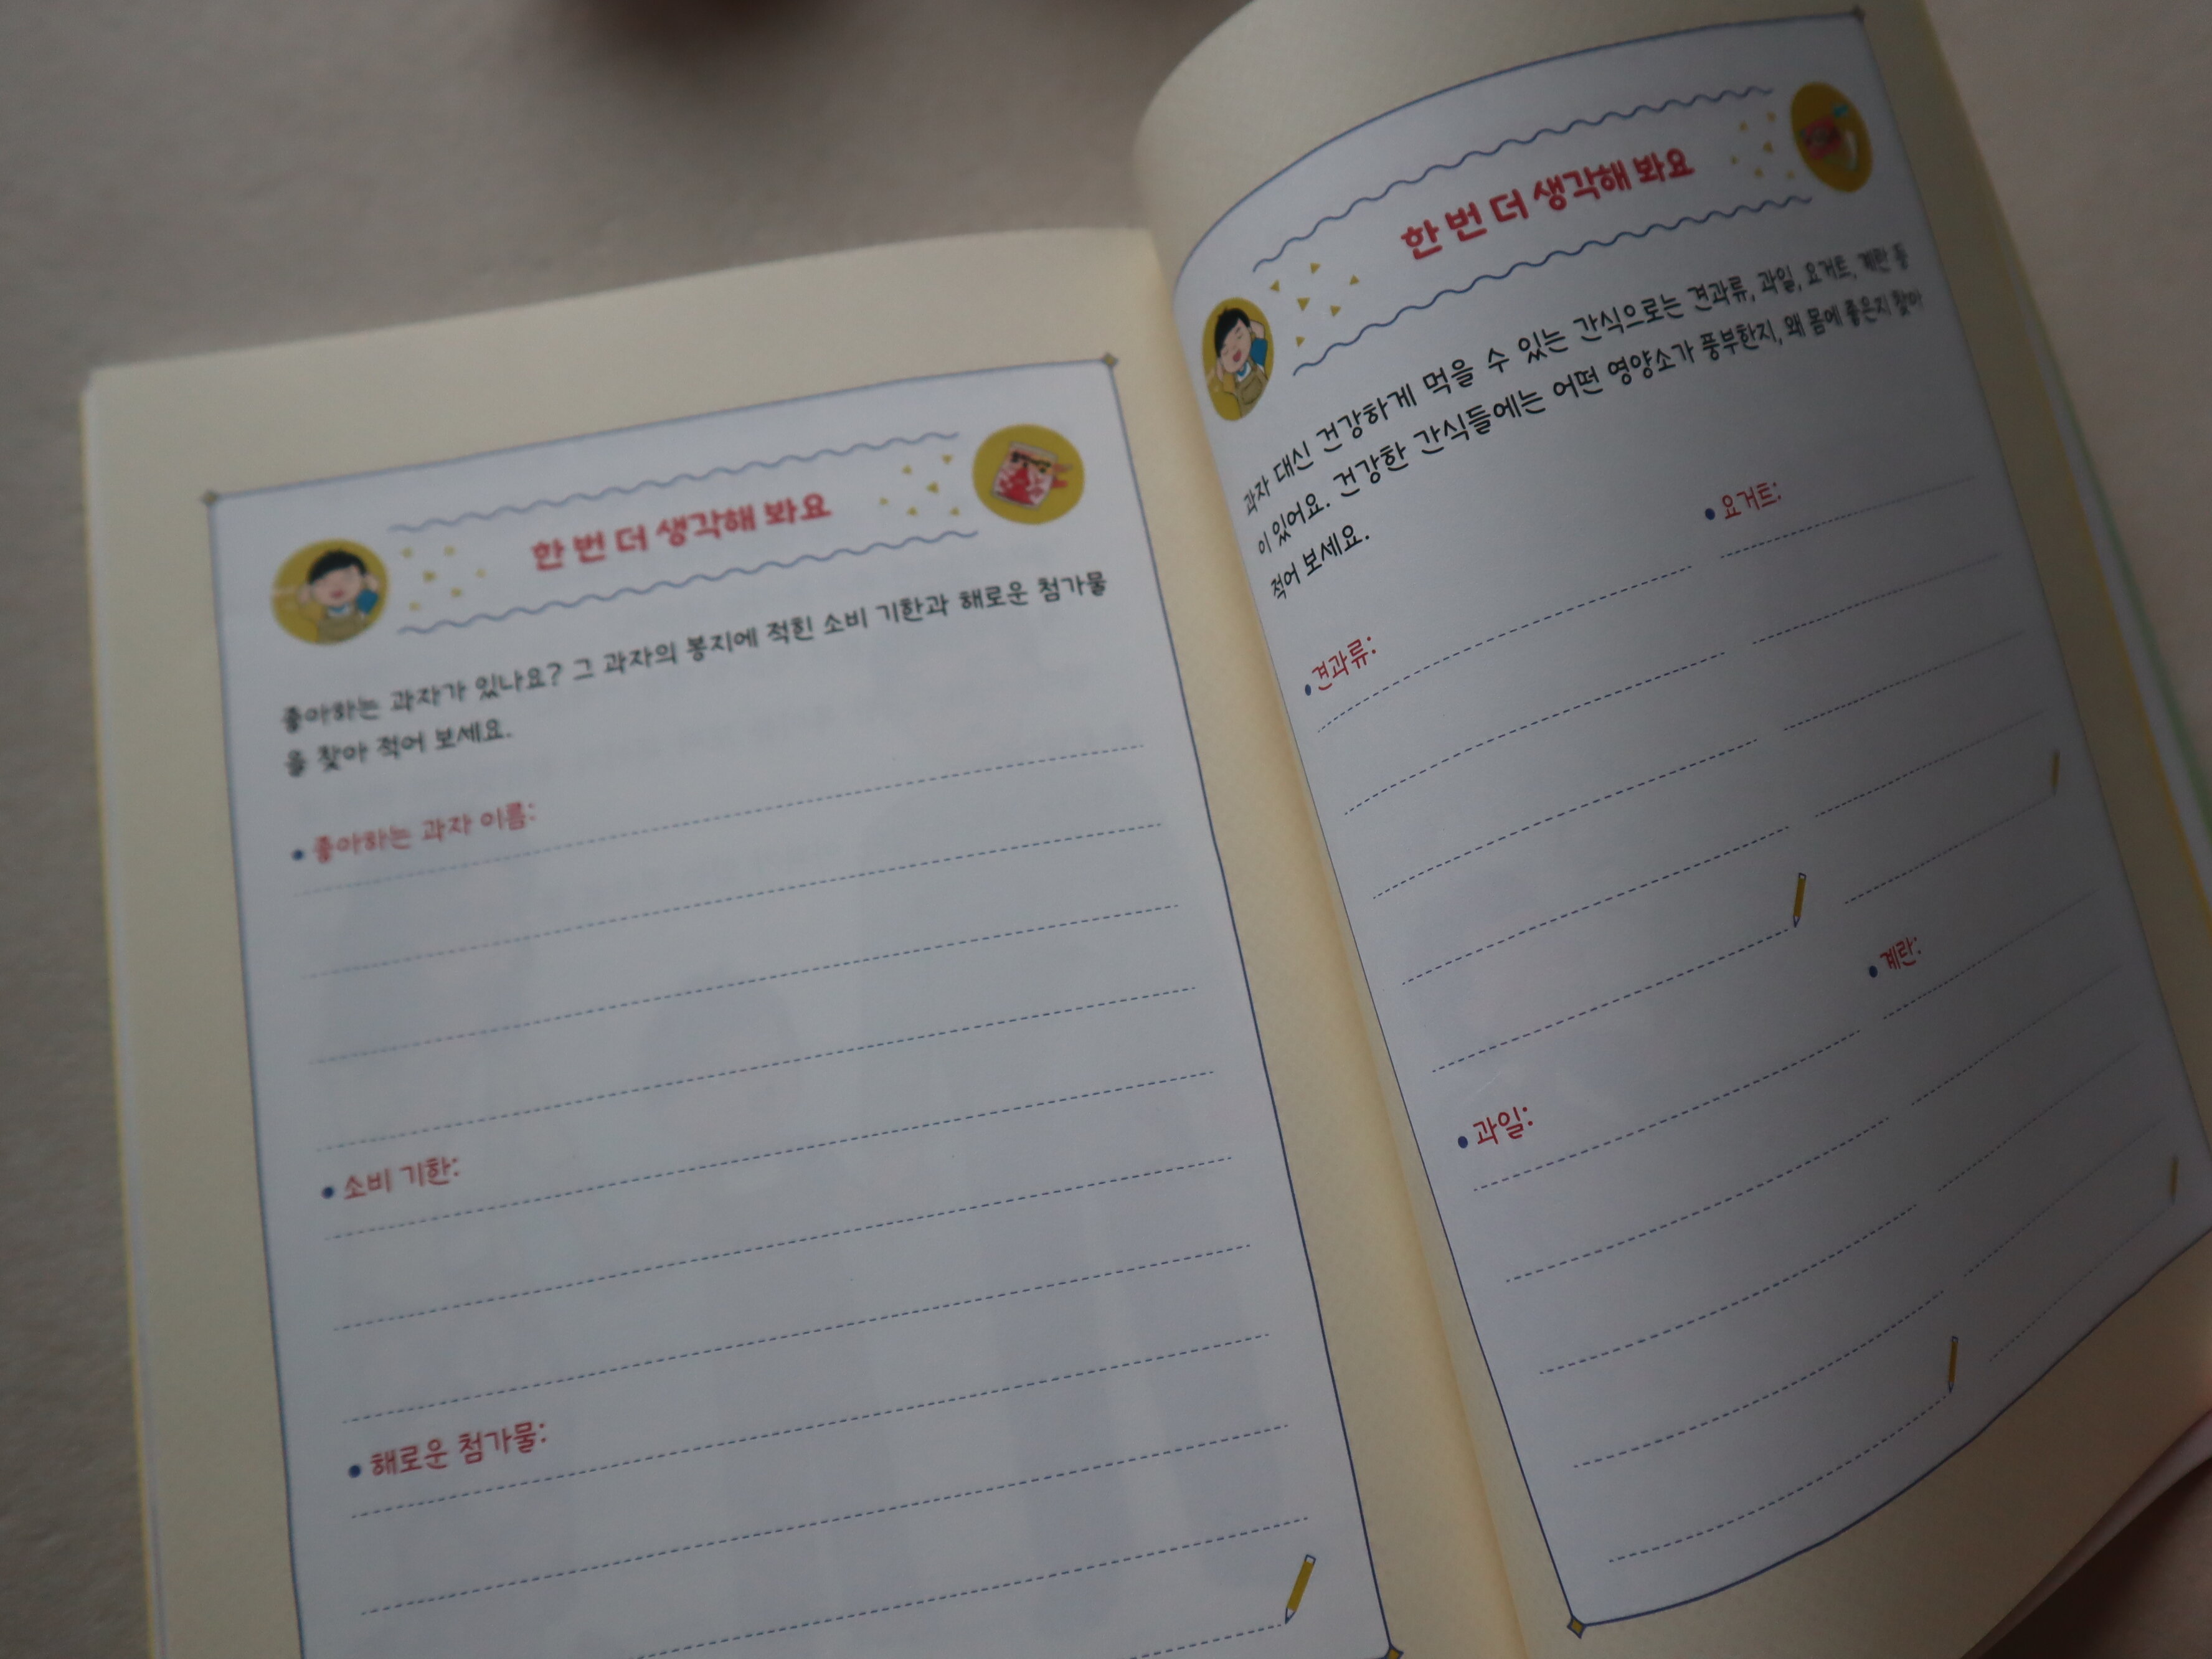 한 번 더 생각해 봐요
좋아하는 과자가 있나요? 그 과자의 봉지에 적힌 소비 기한과 해로운 첨가물
을 찾아 적어 보세요.
• 좋아하는 과자 이름:
• 소비 기한:
• 해로운 첨가물:
한 번 더 생각해 봐요
과자 대신 건강하게 먹을 수 있는 간식으로는 견과류, 과일, 요거트, 계란 등
이 있어요. 건강한 간식들에는 어떤 영양소가 풍부한지, 왜 몸에 좋은지 찾아
적어 보세요.
• 견과류:
• 과일:
• 요거트:
• 계란: